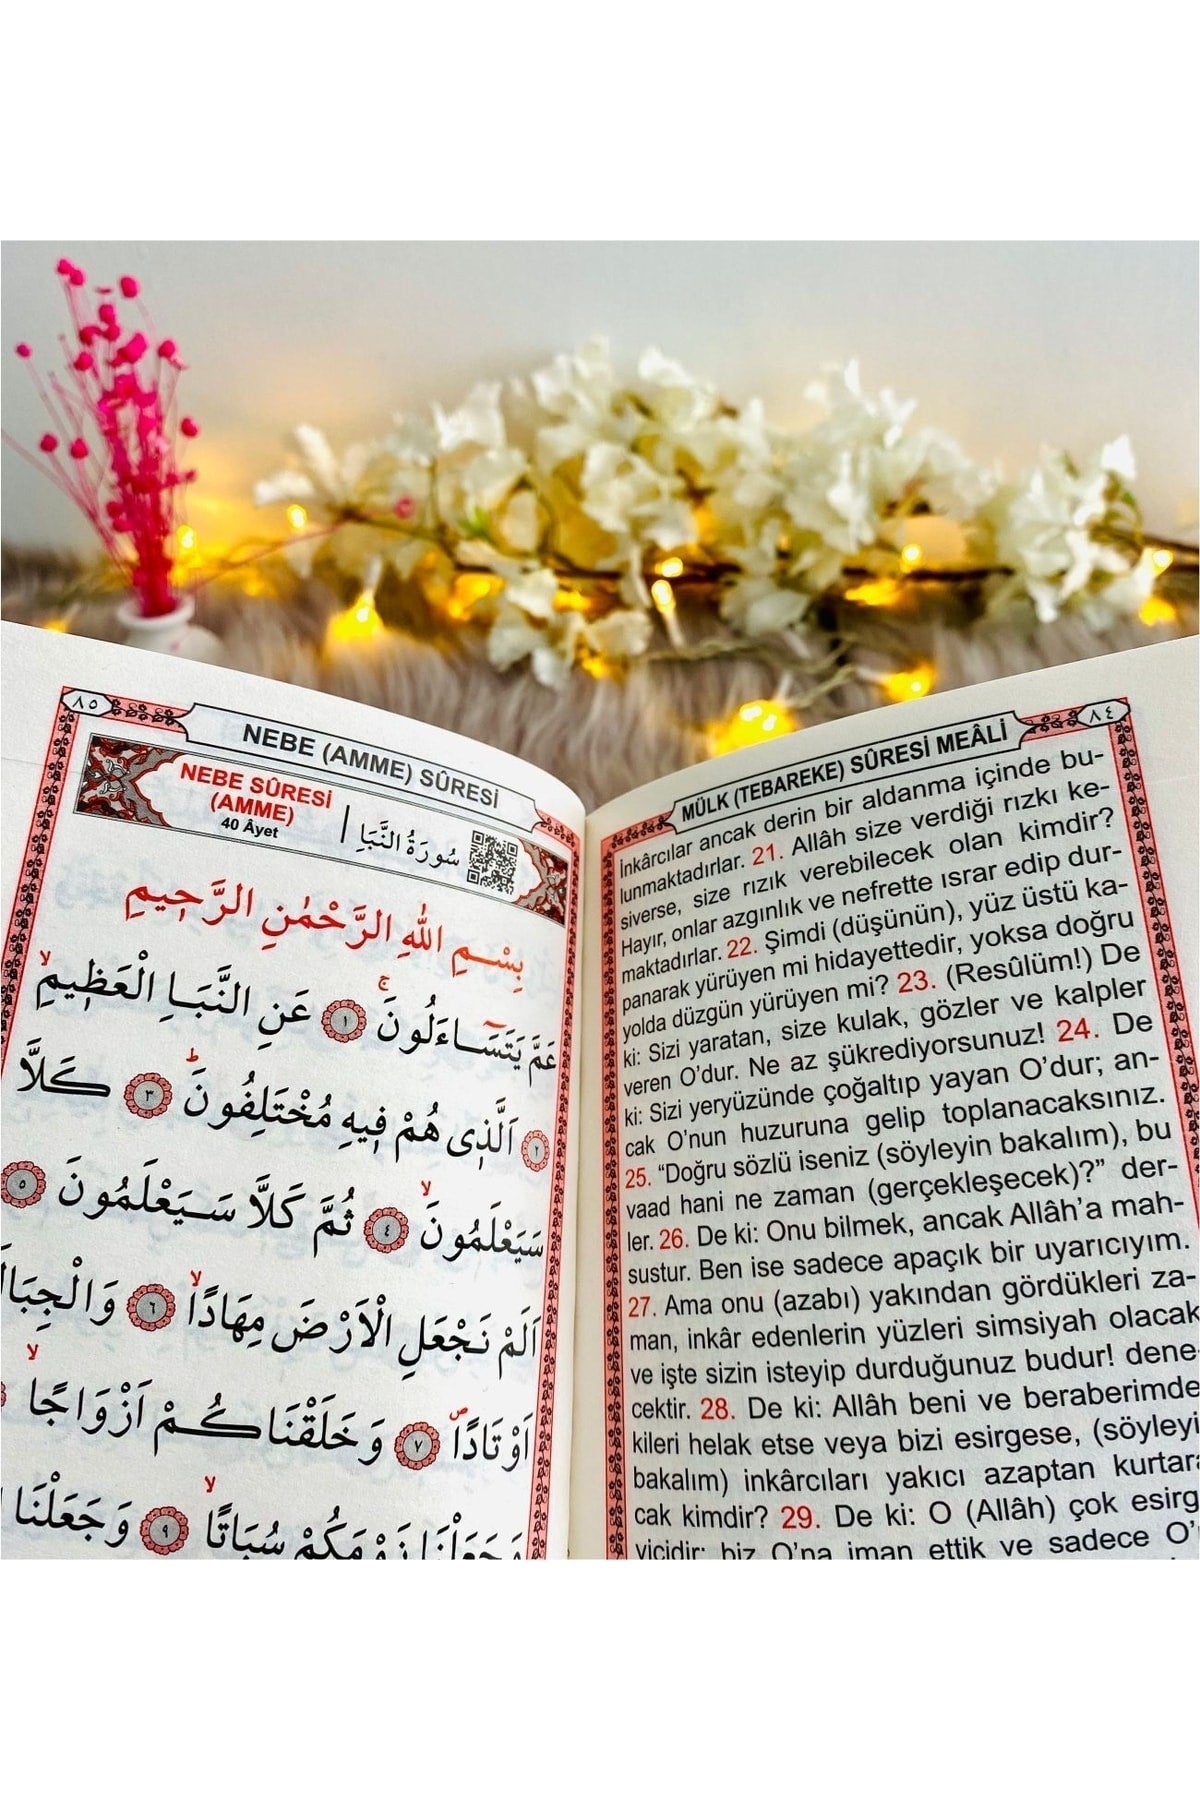 ٨٤
MÜLK (TEBAREKE) SÛRESİ MEÂLİ
İnkârcılar ancak derin bir aldanma içinde bu-
lunmaktadırlar. 21. Allâh size verdiği rızkı ke-
siverse, size rızık verebilecek olan kimdir?
Hayır, onlar azgınlık ve nefrette ısrar edip dur-
maktadırlar. 22. Şimdi (düşünün), yüz üstü ka-
panarak yürüyen mi hidayettedir, yoksa doğru
yolda düzgün yürüyen mi? 23. (Resûlüm!) De
ki: Sizi yaratan, size kulak, gözler ve kalpler
veren O’dur. Ne az şükrediyorsunuz! 24. De
ki: Sizi yeryüzünde çoğaltıp yayan O’dur; an-
cak O’nun huzuruna gelip toplanacaksınız.
25. “Doğru sözlü iseniz (söyleyin bakalım), bu
vaad hani ne zaman (gerçekleşecek)?” der-
ler. 26. De ki: Onu bilmek, ancak Allâh’a mah-
sustur. Ben ise sadece apaçık bir uyarıcıyım.
27. Ama onu (azabı) yakından gördükleri za-
man, inkâr edenlerin yüzleri simsiyah olacak
ve işte sizin isteyip durduğunuz budur! dene-
cektir. 28. De ki: Allâh beni ve beraberimde
kileri helak etse veya bizi esirgese, (söyleyi
bakalım) inkârcıları yakıcı azaptan kurtara
cak kimdir? 29. De ki: O (Allâh) çok esirg
yicidir; biz O’na iman ettik ve sadece O’
٨٥
NEBE (AMME) SÛRESİ
NEBE SÛRESİ
(AMME)
40 Âyet
سُورَةُ النَّبَأِ
بِسْمِ اللّٰهِ الرَّحْمٰنِ الرَّح۪يمِ
عَمَّ يَتَسَٓاءَلُونَۚ ١ عَنِ النَّبَأِ الْعَظ۪يمِۙ
٢ اَلَّذ۪ي هُمْ ف۪يهِ مُخْتَلِفُونَۜ ٣ كَلَّا
سَيَعْلَمُونَۙ ٤ ثُمَّ كَلَّا سَيَعْلَمُونَ ٥
اَلَمْ نَجْعَلِ الْاَرْضَ مِهَادًاۙ ٦ وَالْجِبَالَ
اَوْتَادًاۖ ٧ وَخَلَقْنَاكُمْ اَزْوَاجًاۙ
وَجَعَلْنَا نَوْمَكُمْ سُبَاتًاۙ ٩ وَجَعَلْنَا